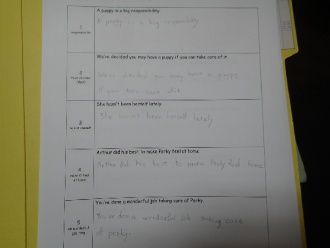 A puppy is a big responsibility.
A puppy is a big responsibility
1
We've decided you may have a puppy if you can take care of it.
2
We've decided you may have a puppy
if you
She hasn't been herself lately.
3
She hasn't been herself lately
Arthur did his best to make Perky feel at home.
4
Arthur did his best to make Perky feel home
You've done a wonderful job taking care of Perky.
5
You've done a wonderful job taking care
of perky.